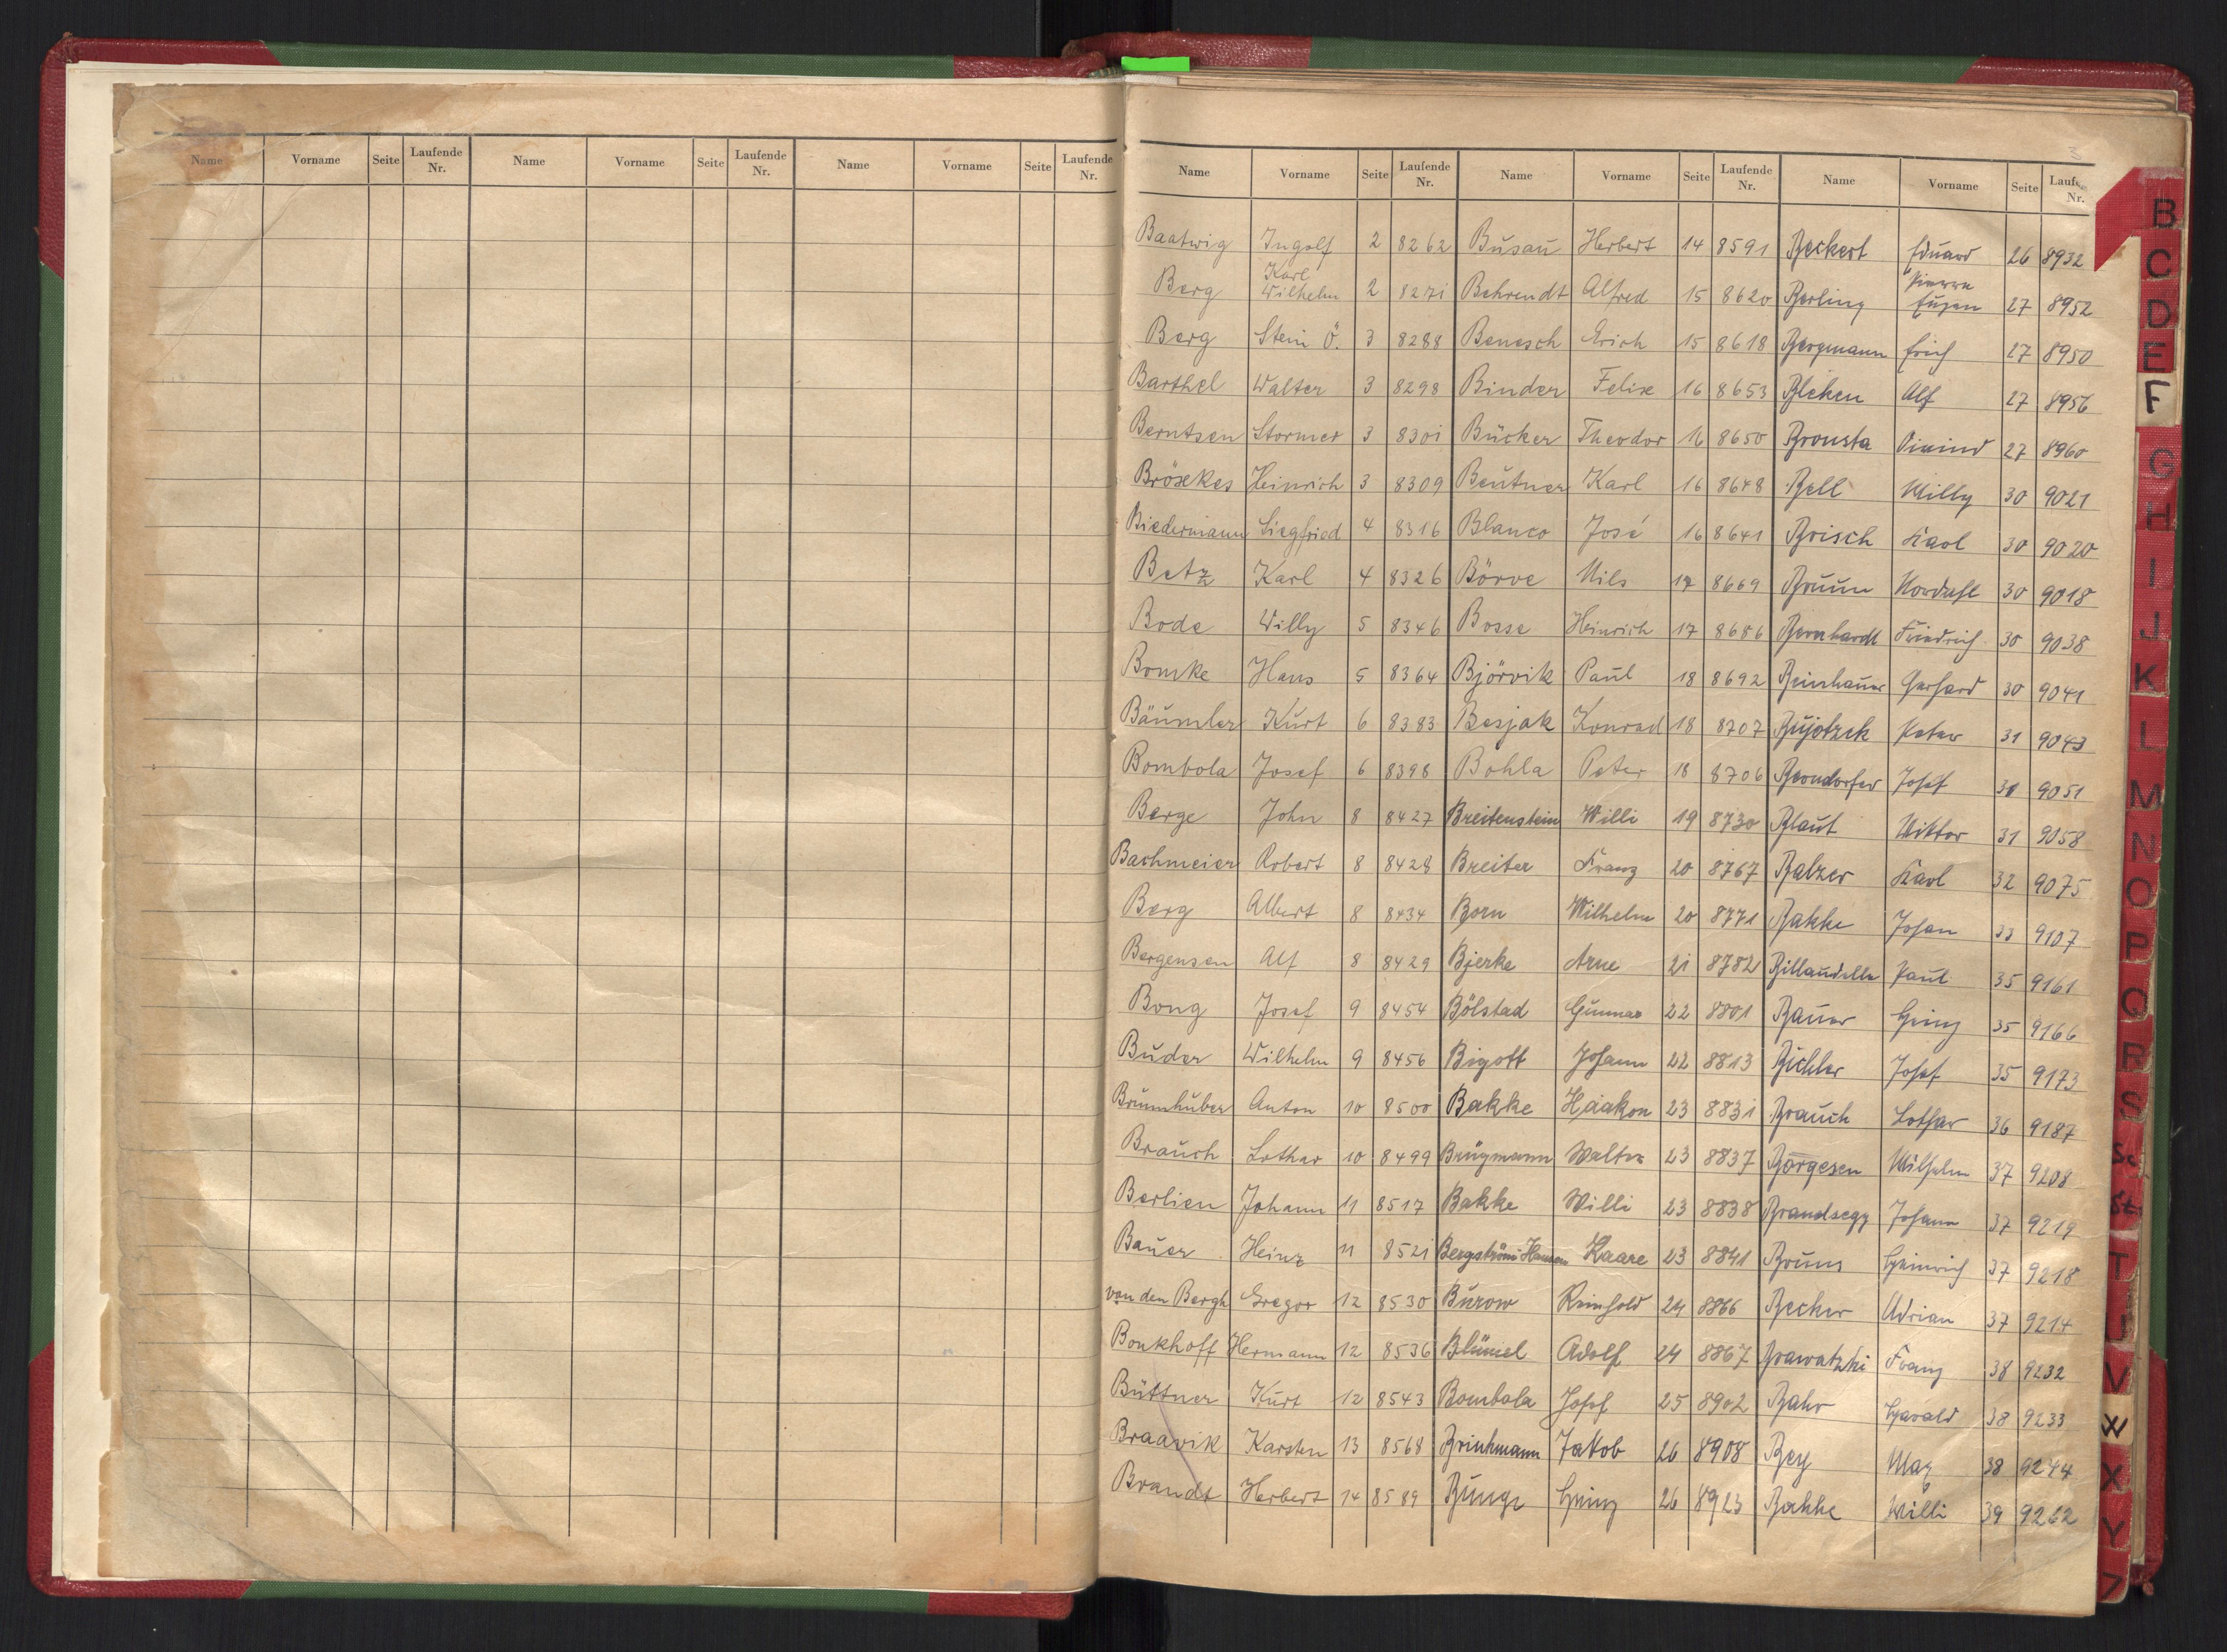 Name Vorname Seite Laufende Nr. Name Vorname Seite Laufende Nr. Name Vorname Seite Laufende Nr.
Name Vorname Seite Laufende Nr. Name Vorname Seite Laufende Nr. Name Vorname Seite Nr.
Baatwig Ingolf 2 8262 Busau Herbert 14 8591 Beckert Eduard 26 8932
Berg Karl Wilhelm 2 8271 Behrendt Alfred 15 8620 Berling Pierre Eugen 27 8952
Berg Stein Ö. 3 8288 Benesch Erich 15 8618 Bergmann Erich 27 8950
Barthel Walter 3 8298 Binder Felix 16 8653 Bleken Alf 27 8956
Berntsen Stormer 3 8301 Bücker Theodor 16 8650 Bronsta Oivind 27 8960
Brösekes Heinrich 3 8309 Beutner Karl 16 8648 Bell Willy 30 9021
Biedermann Siegfried 4 8316 Blanco José 16 8641 Brisch Karl 30 9020
Betz Karl 4 8326 Börve Nils 17 8669 Bruun Nordahl 30 9018
Bode Willy 5 8346 Bosse Heinrich 17 8686 Bernhardt Friedrich 30 9038
Bomke Hans 5 8364 Björvik Paul 18 8692 Beinhauer Gerhard 30 9041
Bäumler Kurt 6 8383 Besjak Konrad 18 8707 Bujotzek Peter 31 9043
Bombola Josef 6 8398 Bohla Peter 18 8706 Berndorfer Josef 31 9051
Berge John 8 8427 Breitenstein Willi 19 8730 Blaut Viktor 31 9058
Bachmeier Robert 8 8428 Breiter Franz 20 8767 Balzer Karl 32 9075
Berg Albert 8 8434 Born Wilhelm 20 8771 Bakke Johan 33 9107
Bergensen Alf 8 8429 Bjerke Arne 21 8782 Billaudelle Paul 35 9161
Bong Josef 9 8454 Bölstad Gunnar 22 8801 Bauer Heinz 35 9166
Buder Wilhelm 9 8456 Bigott Johann 22 8813 Bichler Josef 35 9173
Brunnhuber Anton 10 8500 Bakke Haakon 23 8831 Brauch Lothar 36 9187
Brauch Lothar 10 8499 Brügmann Walter 23 8837 Börgesen Wilhelm 37 9208
Berlien Johann 11 8517 Bakke Willi 23 8838 Brandsegg Johann 37 9219
Bauer Heinz 11 8521 Bergström-Hansen Kaare 23 8841 Bruns Heinrich 37 9218
von den Bergh Gregor 12 8530 Burow Reinhold 24 8866 Becker Adrian 37 9214
Bonkhoff Hermann 12 8536 Blümel Adolf 24 8867 Brawatzki Franz 38 9232
Büttner Kurt 12 8543 Bombala Josef 25 8902 Bahr Harald 38 9233
Braavik Karsten 13 8568 Brinkmann Jakob 26 8908 Bey Max 38 9244
Brandt Herbert 14 8589 Bunge Heinz 26 8923 Bakke Willi 39 9262
B
C
D
E
F
G
H
I
J
K
L
M
N
O
P
Q
R
S
Sc
St
T
U
V
W
X
Y
Z